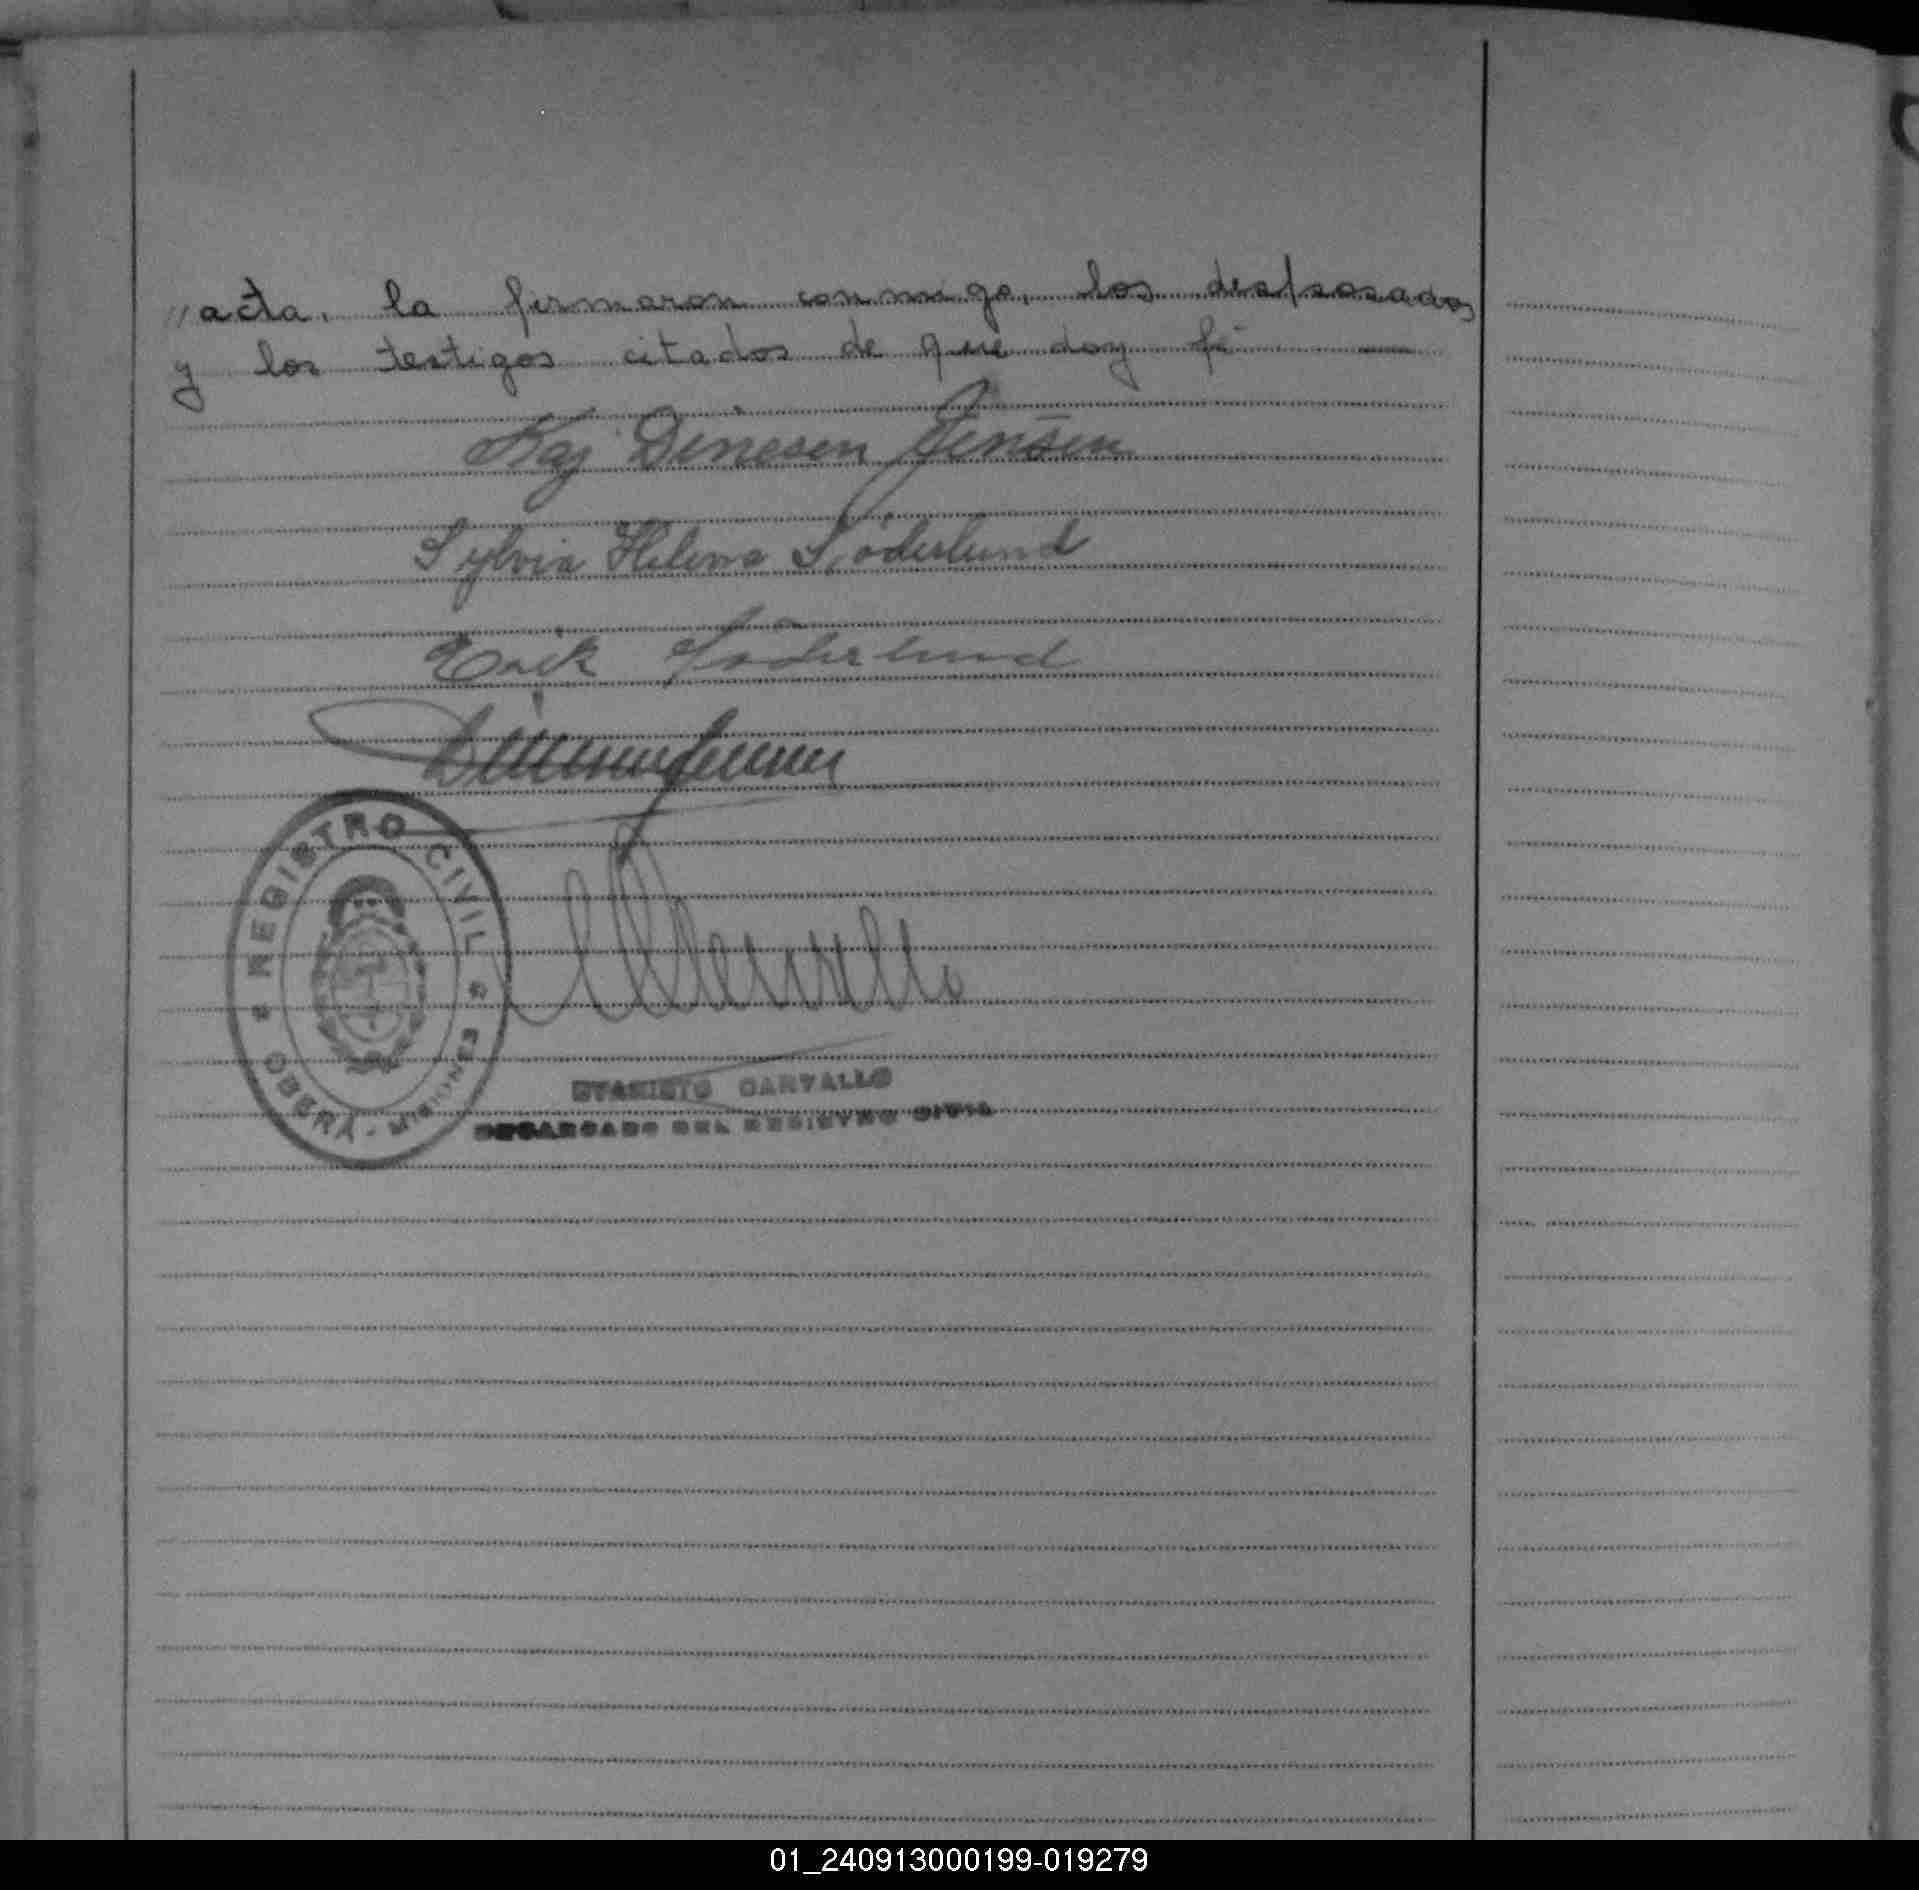 //acta, la firmaron conmigo, los desposados
y los testigos citados de que doy fé
Kaj Dinesen Jensen
Sylvia Helena Söderlund
Erik Söderlund
REGISTRO CIVIL
OBERÁ - MISIONES
CARVALLO
ENCARGADO DEL REGISTRO CIVIL
01_240913000199-019279